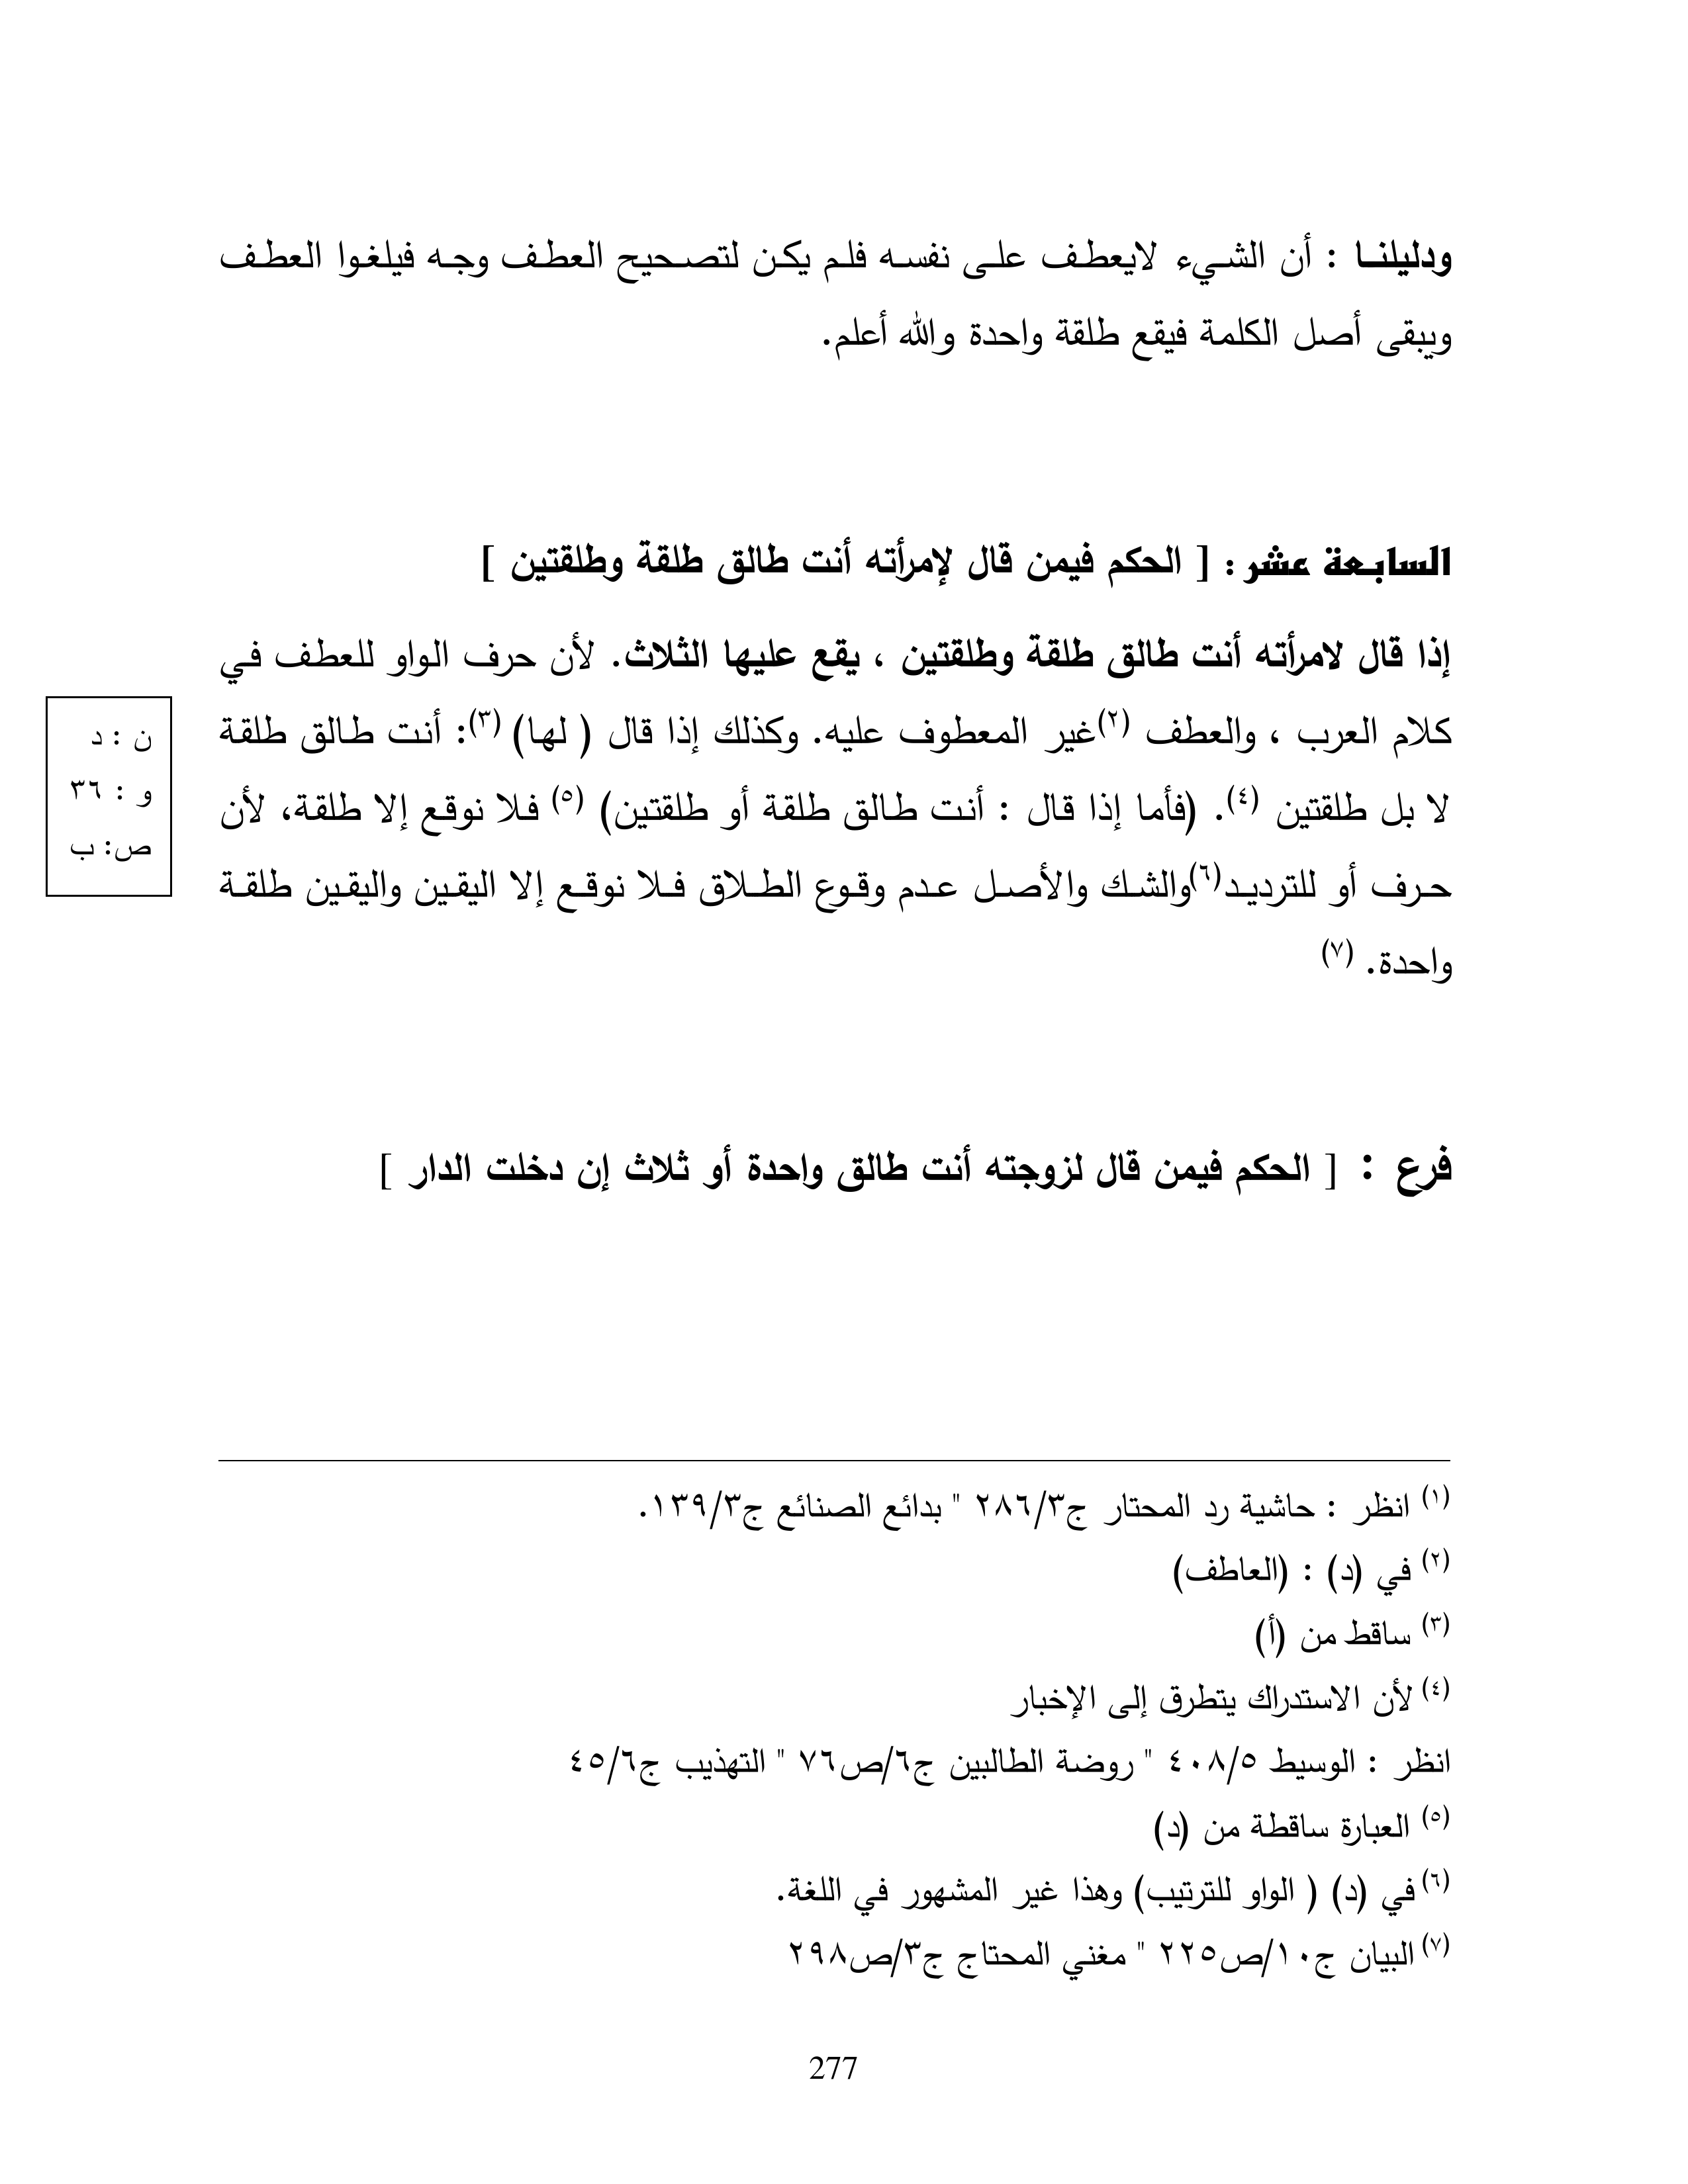 ودليلنا : أن الشيء لايعطف على نفسه فلم يكن لتصحيح العطف وجه فيلغوا العطف
ويبقى أصل الكلمة فيقع طلقة واحدة والله أعلم.
السابعة عشر : [ الحكم فيمن قال لإمرأته أنت طالق طلقة وطلقتين ]
إذا قال لامرأته أنت طالق طلقة وطلقتين ، يقع عليها الثلاث. لأن حرف الواو للعطف في
كلام العرب ، والعطف (٢)غير المعطوف عليه. وكذلك إذا قال ( لها) (٣): أنت طالق طلقة
لا بل طلقتين (٤). (فأما إذا قال : أنت طالق طلقة أو طلقتين) (٥) فلا نوقع إلا طلقة، لأن
حرف أو للترديد(٦)والشك والأصل عدم وقوع الطلاق فلا نوقع إلا اليقين واليقين طلقة
واحدة. (٧)
ن : د
و : ٣٦
ص: ب
فرع : [ الحكم فيمن قال لزوجته أنت طالق واحدة أو ثلاث إن دخلت الدار ]
(١) انظر : حاشية رد المحتار ج٢٨٦/٣ " بدائع الصنائع ج١٣٩/٣.
(٢) في (د) : (العاطف)
(٣) ساقط من (أ)
(٤) لأن الاستدراك يتطرق إلى الإخبار
انظر : الوسيط ٤٠٨/٥ " روضة الطالبين ج٦/ص٧٦ " التهذيب ج٤٥/٦
(٥) العبارة ساقطة من (د)
(٦) في (د) ( الواو للترتيب) وهذا غير المشهور في اللغة.
(٧) البيان ج١٠/ص٢٢٥ " مغني المحتاج ج٣/ص٢٩٨
277